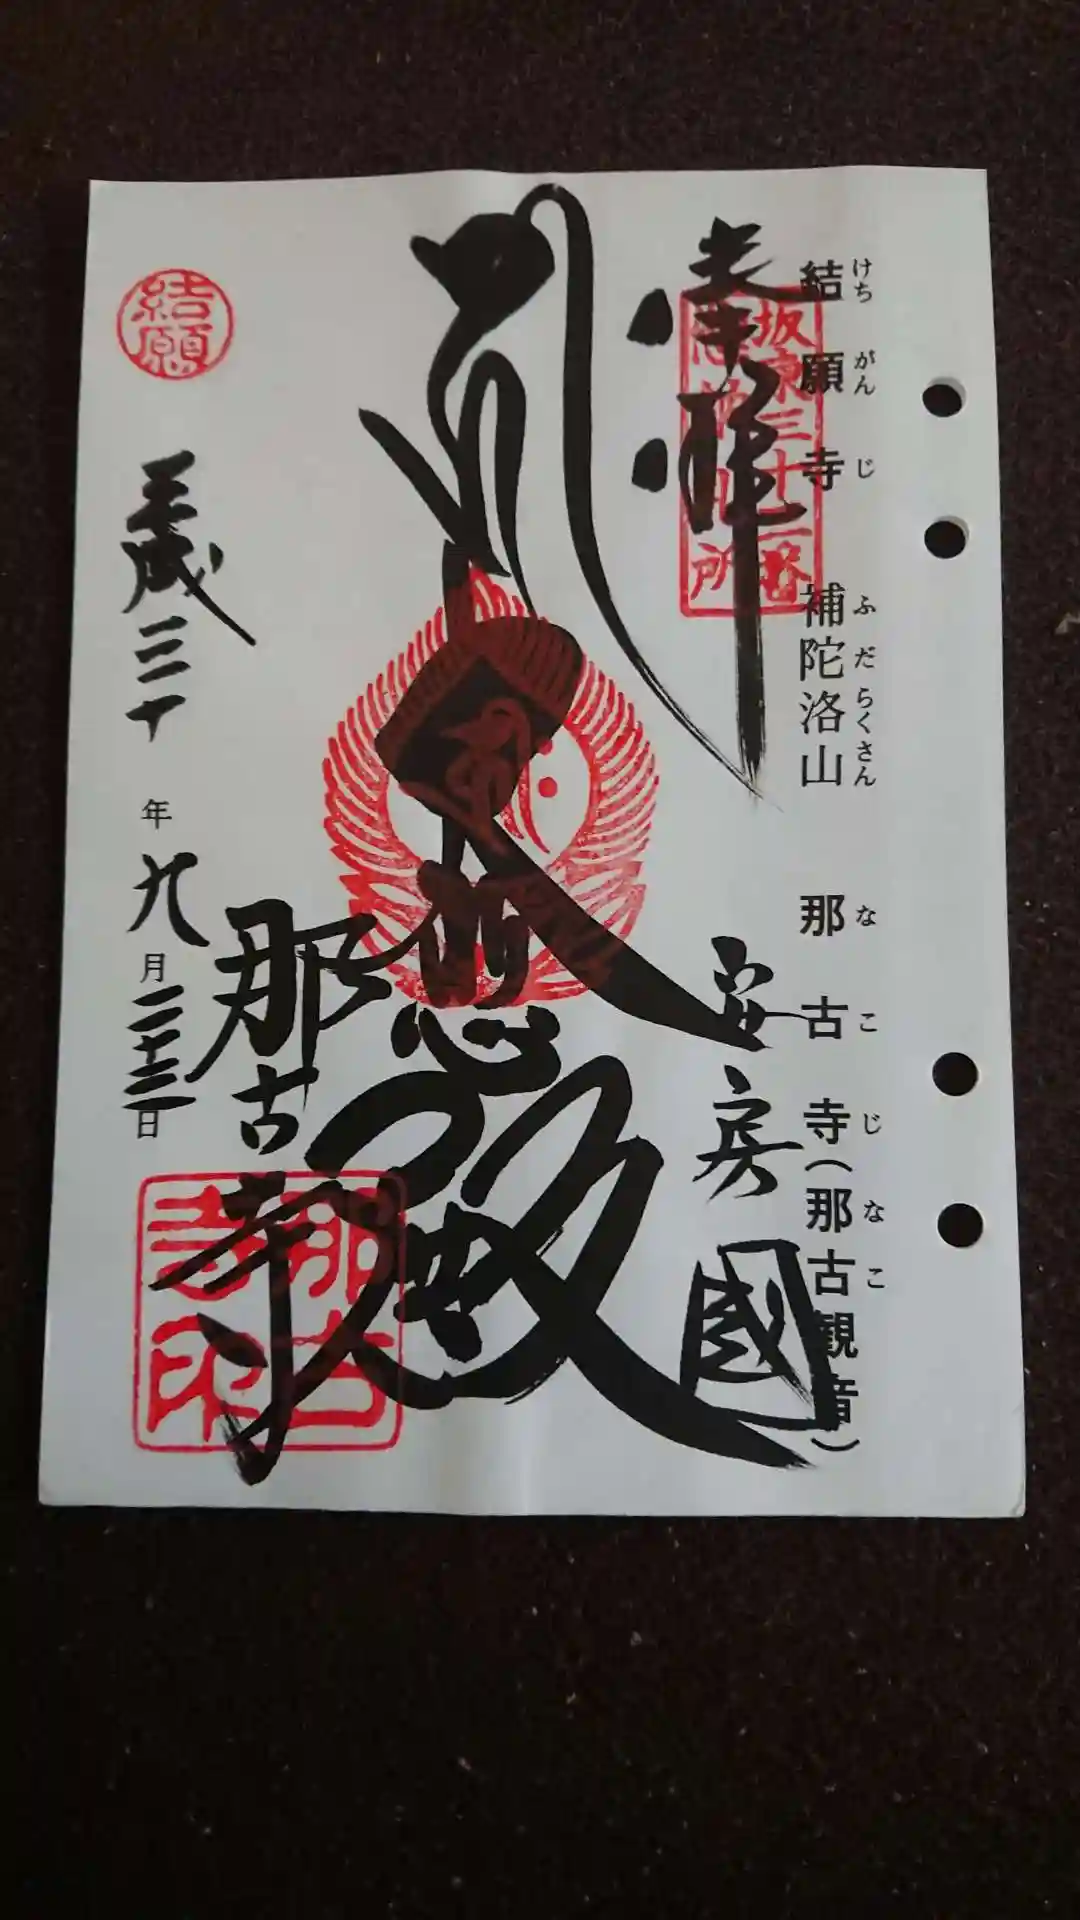 結願寺 補陀洛山 那古寺(那古観音)
けち がん じ ふ だ らく さん な こ じ な こ
奉拝
坂東三十三番
所
安房國
大悲殿
那古寺
平成三十年九月二十三日
結願
那古寺印